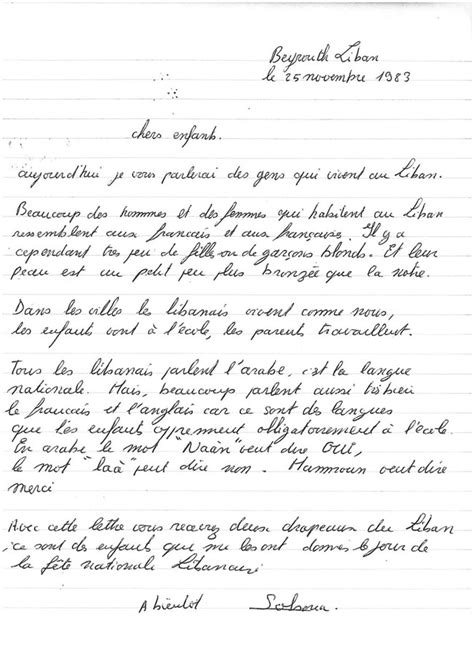 Beyrouth Liban
le 25 novembre 1983
chers enfants.
aujourd'hui je vous parlerai des gens qui vivent au Liban.
Beaucoup des hommes et des femmes qui habitent au Liban
ressemblent aux francais et aux françaises. Il y a
cependant très peu de fille ou de garçons blonds. Et leur
peau est un petit peu plus bronzée que la notre.
Dans les villes les libanais vivent comme nous,
les enfants vont à l'école, les parents travaillent.
Tous les libanais parlent l'arabe, c'est la langue
nationale. Mais, beaucoup parlent aussi très bien
le francais et l'anglais car ce sont des langues
que les enfants apprennent obligatoirement à l'école.
En arabe le mot "Naàn" veut dire OUI,
le mot "laà" veut dire non. Hamnoun veut dire
merci
Avec cette lettre vous recevrez deux drapeaux du Liban
ce sont des enfants qui me les ont donnés le jour de
la fête nationale Libanaise
A bientot